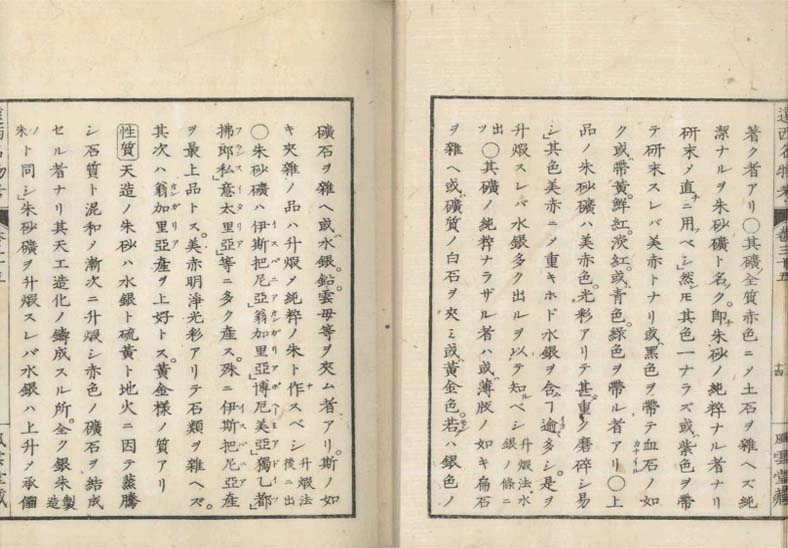 著ク者アリ〇其礦全質赤色ニメ土石ヲ雜ヘズ純
潔ナルヲ朱砂礦ト名ク。即朱砂ノ純粹ナル者ナリ
研末メ直ニ用ベシ」然ㇾ𪜈其色一ナラズ或紫色ヲ帶
テ研末スレバ美赤トナリ或黑色ヲ帶テ血石ノ如
ク或帶黄。鮮紅。淡紅。或青色。綠色ヲ帶ル者アリ〇上
品ノ朱砂礦ハ美赤色。光彩アリテ甚重ク磨碎シ易
シ」其色美赤ニメ重キホド水銀ヲ含ヿ逾多シ。是ヲ
升煅スレバ水銀多ク出ルヲ以テ知ベシ 升煅法水銀ノ條ニ
出ツ 〇其礦ノ純粹ナラザル者ハ或薄版ノ如キ扁石
ヲ雜ヘ或礦質ノ白石ヲ夾ミ或黄金色。若ハ銀色ノ
遠西名物考
卷三十五
十四
風雲堂藏
礦石ヲ雜ヘ或水銀。鉛。雲母等ヲ夾ム者アリ。斯ノ如
キ夾雜ノ品ハ升煅メ純粹ノ朱ト作スベシ 升煅法後ニ出
〇朱砂礦ハ伊斯把尼亞」翁加里亞」博厄美亞」獨乙都」
拂郎私」意太里亞」等ニ多ク産ス。殊ニ伊斯把尼亞産
ヲ最上品トス。美赤明淨光彩アリテ石類ヲ雜ヘズ。
其次ハ翁加里亞産ヲ上好トス。黄金樣ノ質アリ
性質 天造ノ朱砂ハ水銀ト硫黄ト地火ニ因テ蒸騰
シ石質ト混和メ漸次ニ升煅シ赤色ノ礦石ヲ結成
セル者ナリ其天工造化ノ鑄成スル所。全ク銀朱製造
ノト同シ」朱砂礦ヲ升煅スレバ水銀ハ上升メ承霤